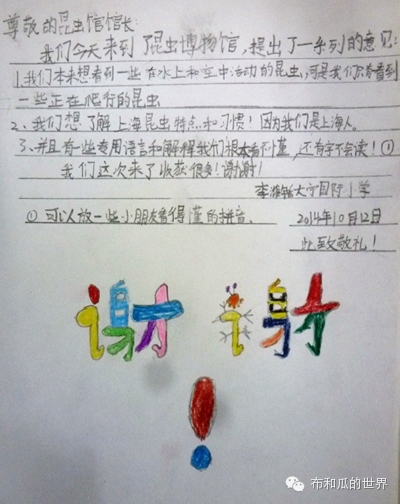 尊敬的昆虫馆馆长:
我们今天来到了昆虫博物馆,提出了一系列的意见:
1.我们本来想看到一些在水上和空中活动的昆虫,可是我们只看到
一些正在爬行的昆虫
2、我们想了解上海昆虫特点和习惯!因为我们是上海人。
3、并且有一些专用语言和解释我们根本看不懂,还有字不会读!①
我们这次来了收获很多!谢谢!
大宁国际小学
①可以放一些小朋友看得懂的拼音、
2014年10月12日
此致敬礼!
谢谢
!
布和瓜的世界